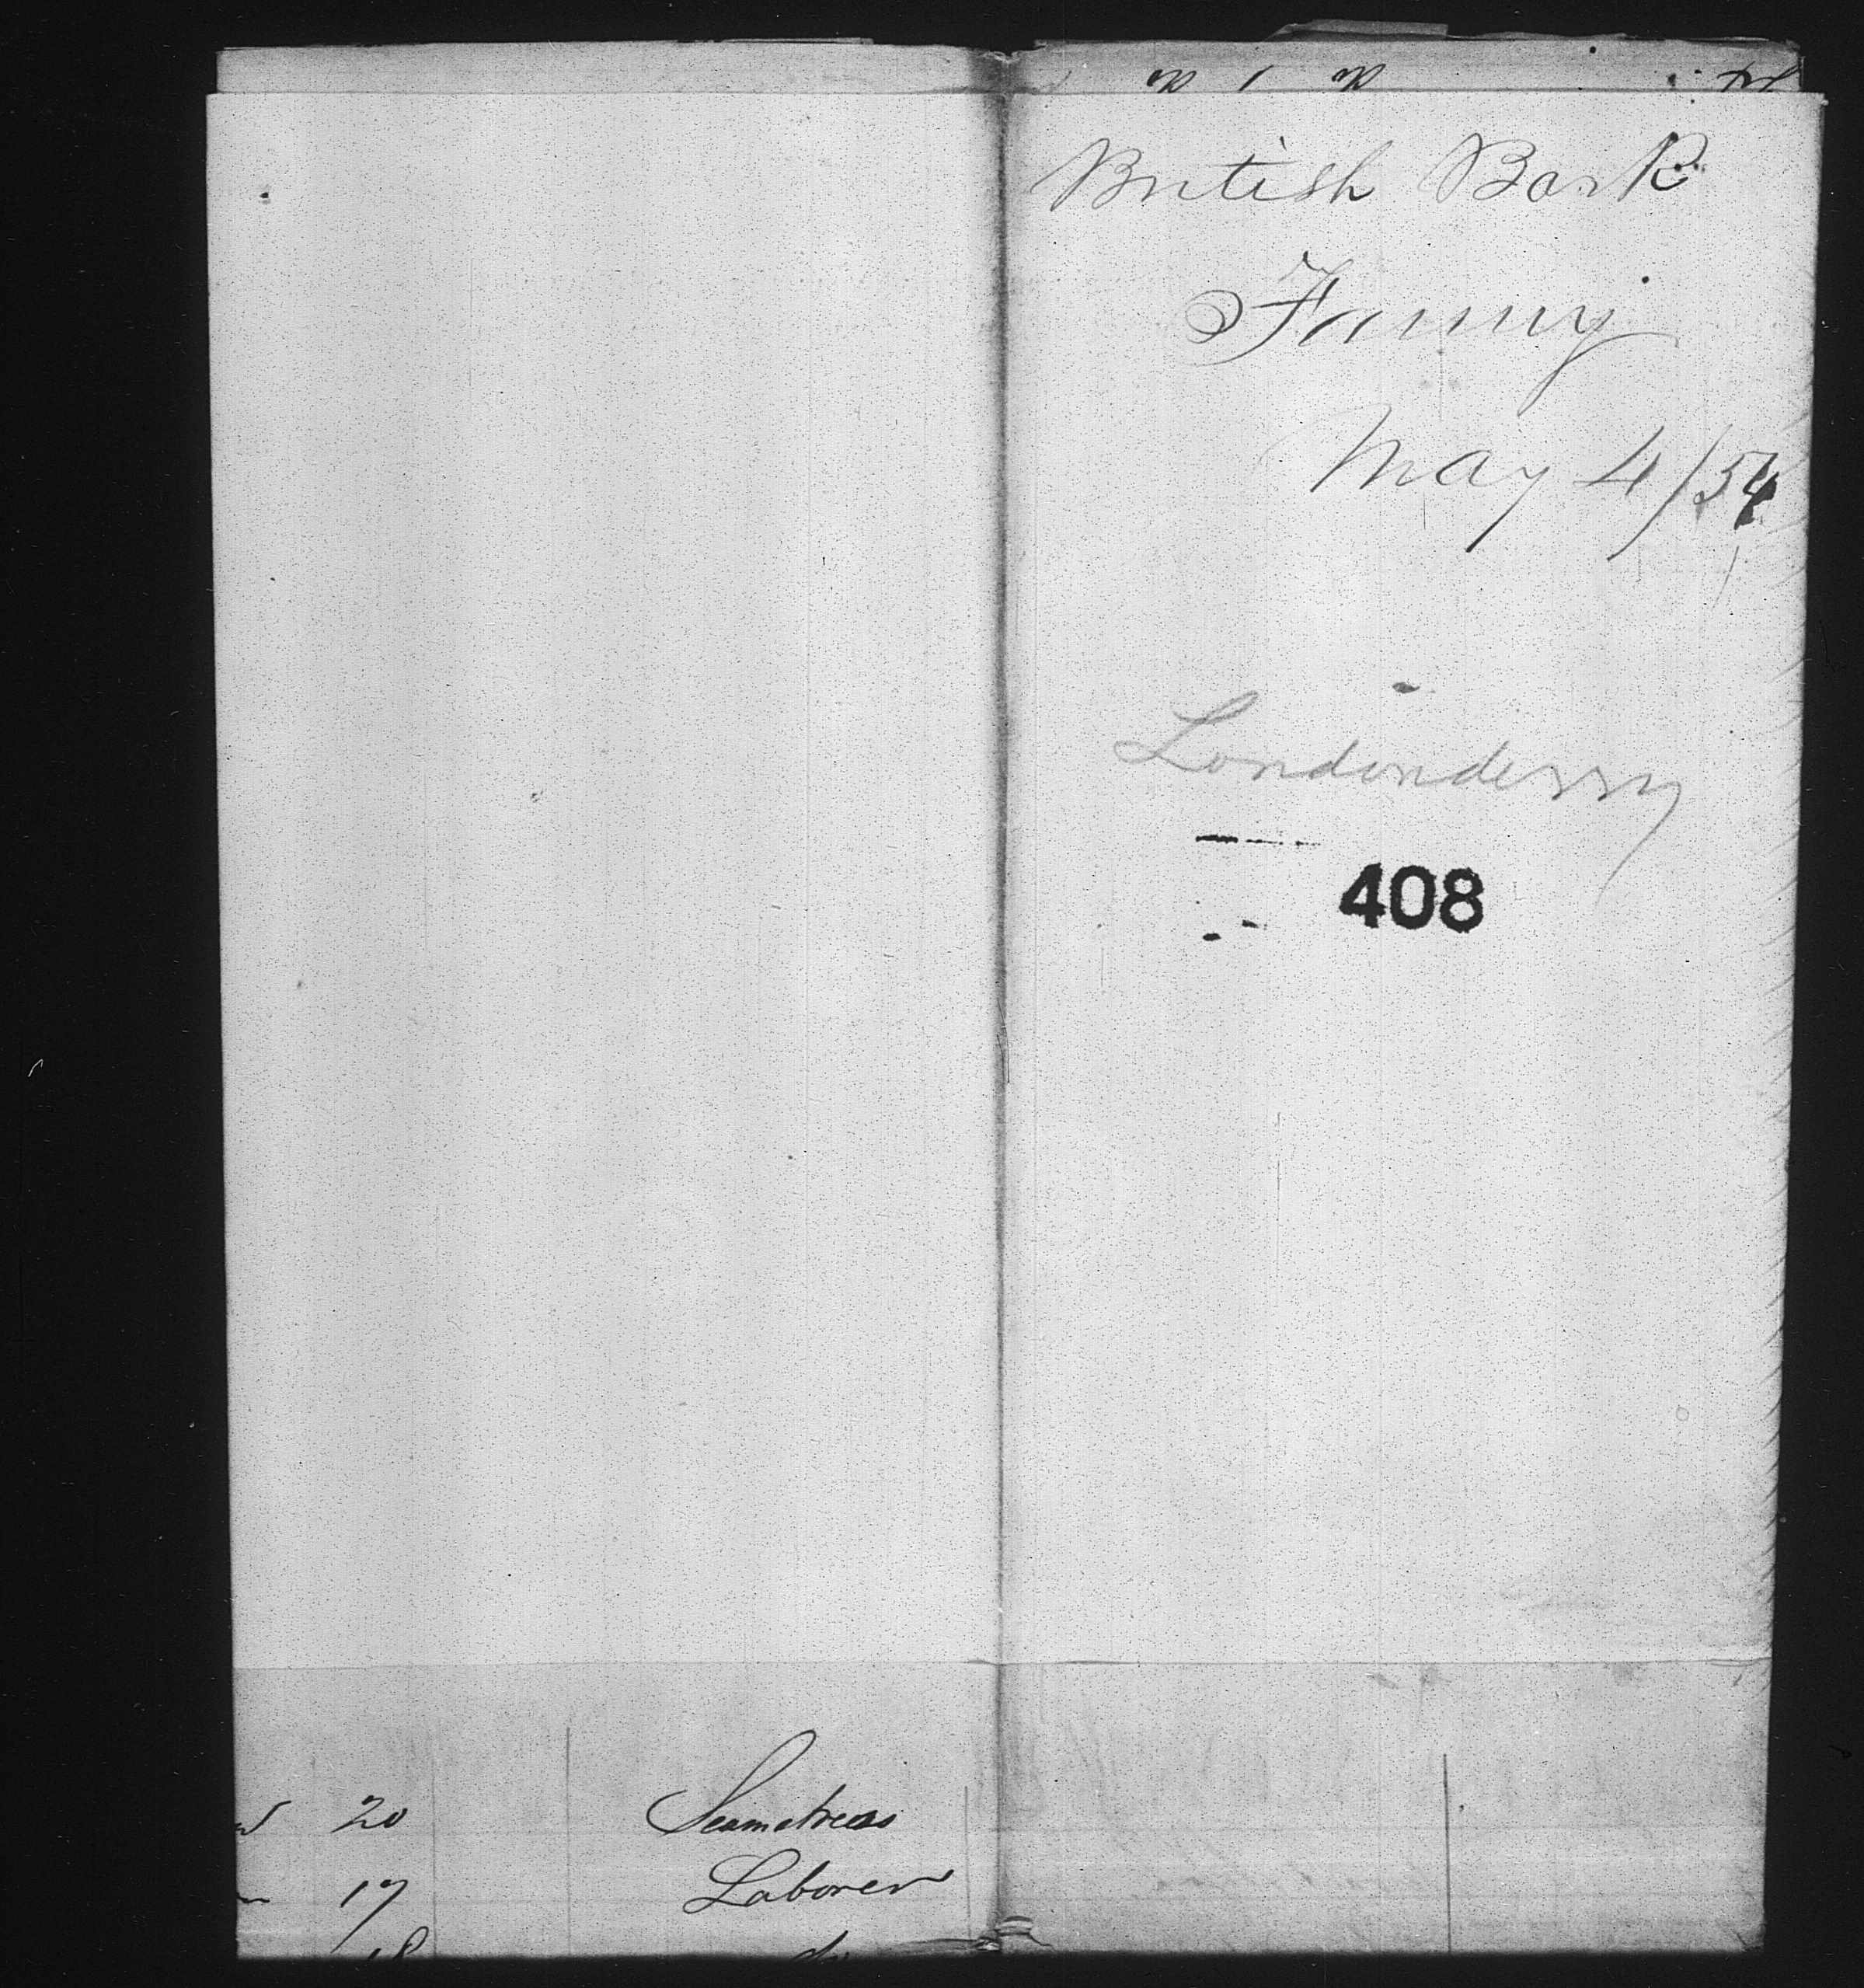 British Bark
Fanny
May 4/54
Londonderry
408
20 Seamstress
17 Laborer
18 do